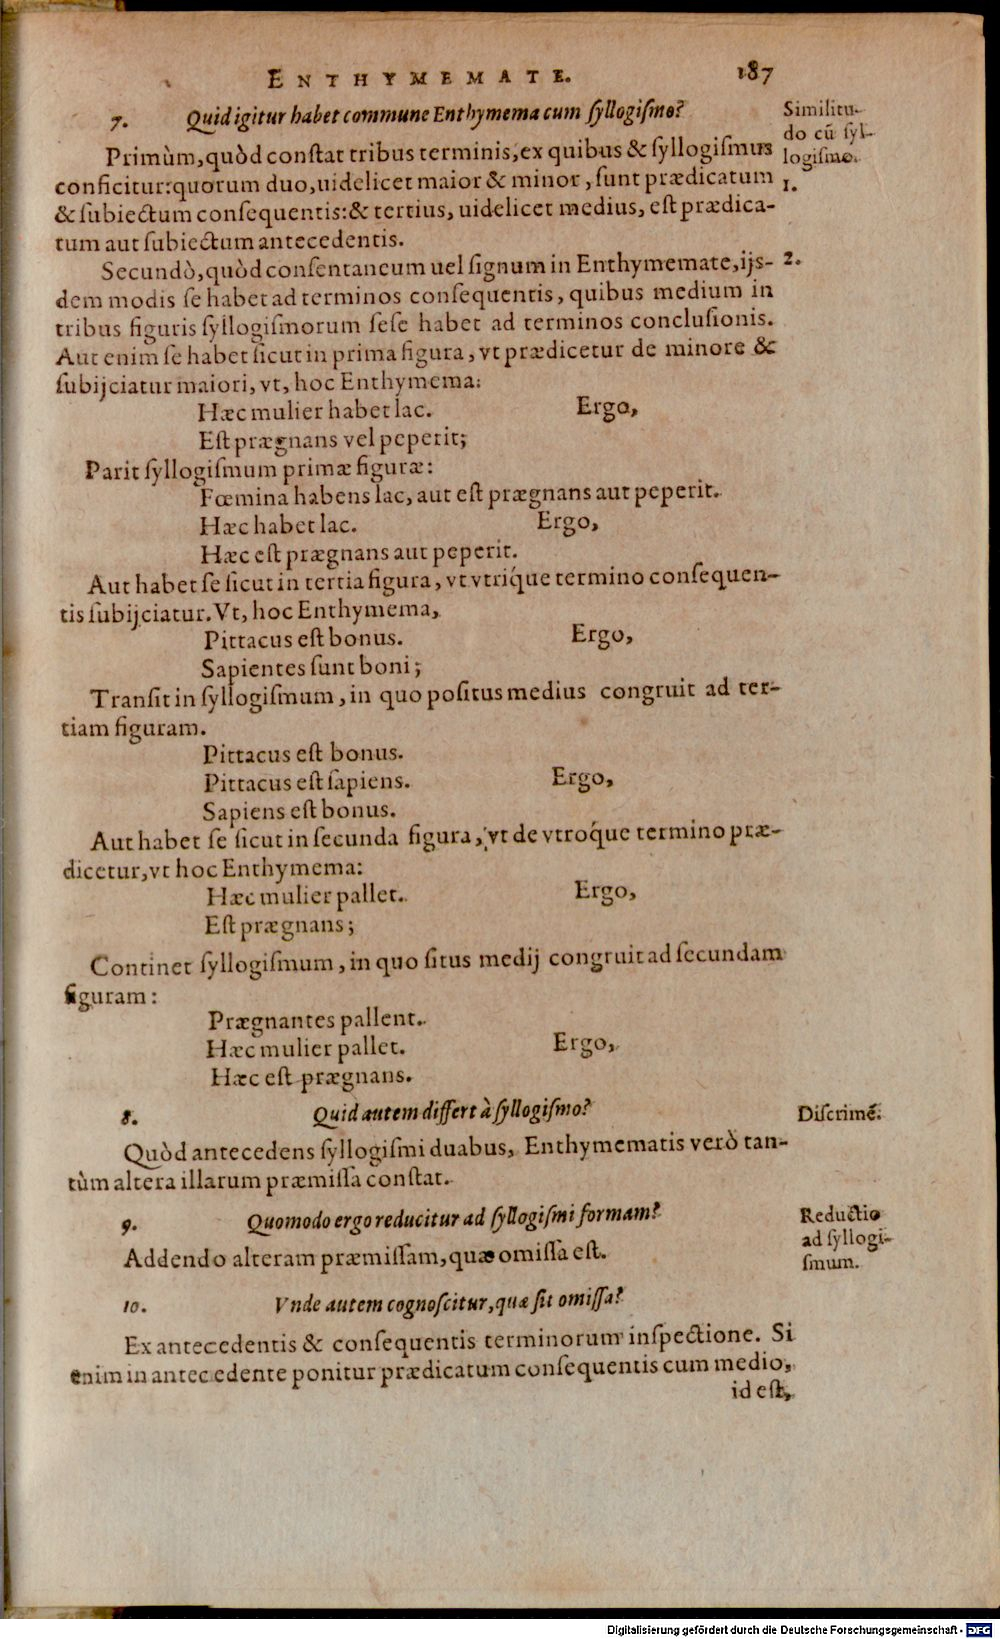 ENTHYMEMATE. 187
7. Quid igitur habet commune Enthymema cum syllogismo?
Similitu-
do cū syl-
logismo.
Primùm, quòd constat tribus terminis, ex quibus & syllogismus
conficitur: quorum duo, uidelicet maior & minor, sunt prædicatum
1.
& subiectum consequentis: & tertius, uidelicet medius, est prædica-
tum aut subiectum antecedentis.
Secundò, quòd consentaneum uel signum in Enthymemate, ijs-
2.
dem modis se habet ad terminos consequentis, quibus medium in
tribus figuris syllogismorum sese habet ad terminos conclusionis.
Aut enim se habet sicut in prima figura, vt prædicetur de minore &
subijciatur maiori, vt, hoc Enthymema:
Hæc mulier habet lac. Ergo,
Est prægnans vel peperit;
Parit syllogismum primæ figuræ:
Fœmina habens lac, aut est prægnans aut peperit.
Hæc habet lac. Ergo,
Hæc est prægnans aut peperit.
Aut habet se sicut in tertia figura, vt vtriq́ue termino consequen-
tis subijciatur. Vt, hoc Enthymema,
Pittacus est bonus. Ergo,
Sapientes sunt boni;
Transit in syllogismum, in quo positus medius congruit ad ter-
tiam figuram.
Pittacus est bonus.
Pittacus est sapiens. Ergo,
Sapiens est bonus.
Aut habet se sicut in secunda figura, vt de vtroq́ue termino præ-
dicetur, vt hoc Enthymema:
Hæc mulier pallet. Ergo,
Est prægnans;
Continet syllogismum, in quo situs medij congruit ad secundam
figuram:
Prægnantes pallent.
Hæc mulier pallet. Ergo,
Hæc est prægnans.
8. Quid autem differt à syllogismo?
Discrimē.
Quòd antecedens syllogismi duabus, Enthymematis verò tan-
tùm altera illarum præmissa constat.
9. Quomodo ergo reducitur ad syllogismi formam?
Reductio
ad syllogi-
smum.
Addendo alteram præmissam, quæ omissa est.
10. Vnde autem cognoscitur, quæ sit omissa?
Ex antecedentis & consequentis terminorum inspectione. Si
enim in antecedente ponitur prædicatum consequentis cum medio,
id est,
Digitalisierung gefördert durch die Deutsche Forschungsgemeinschaft - DFG